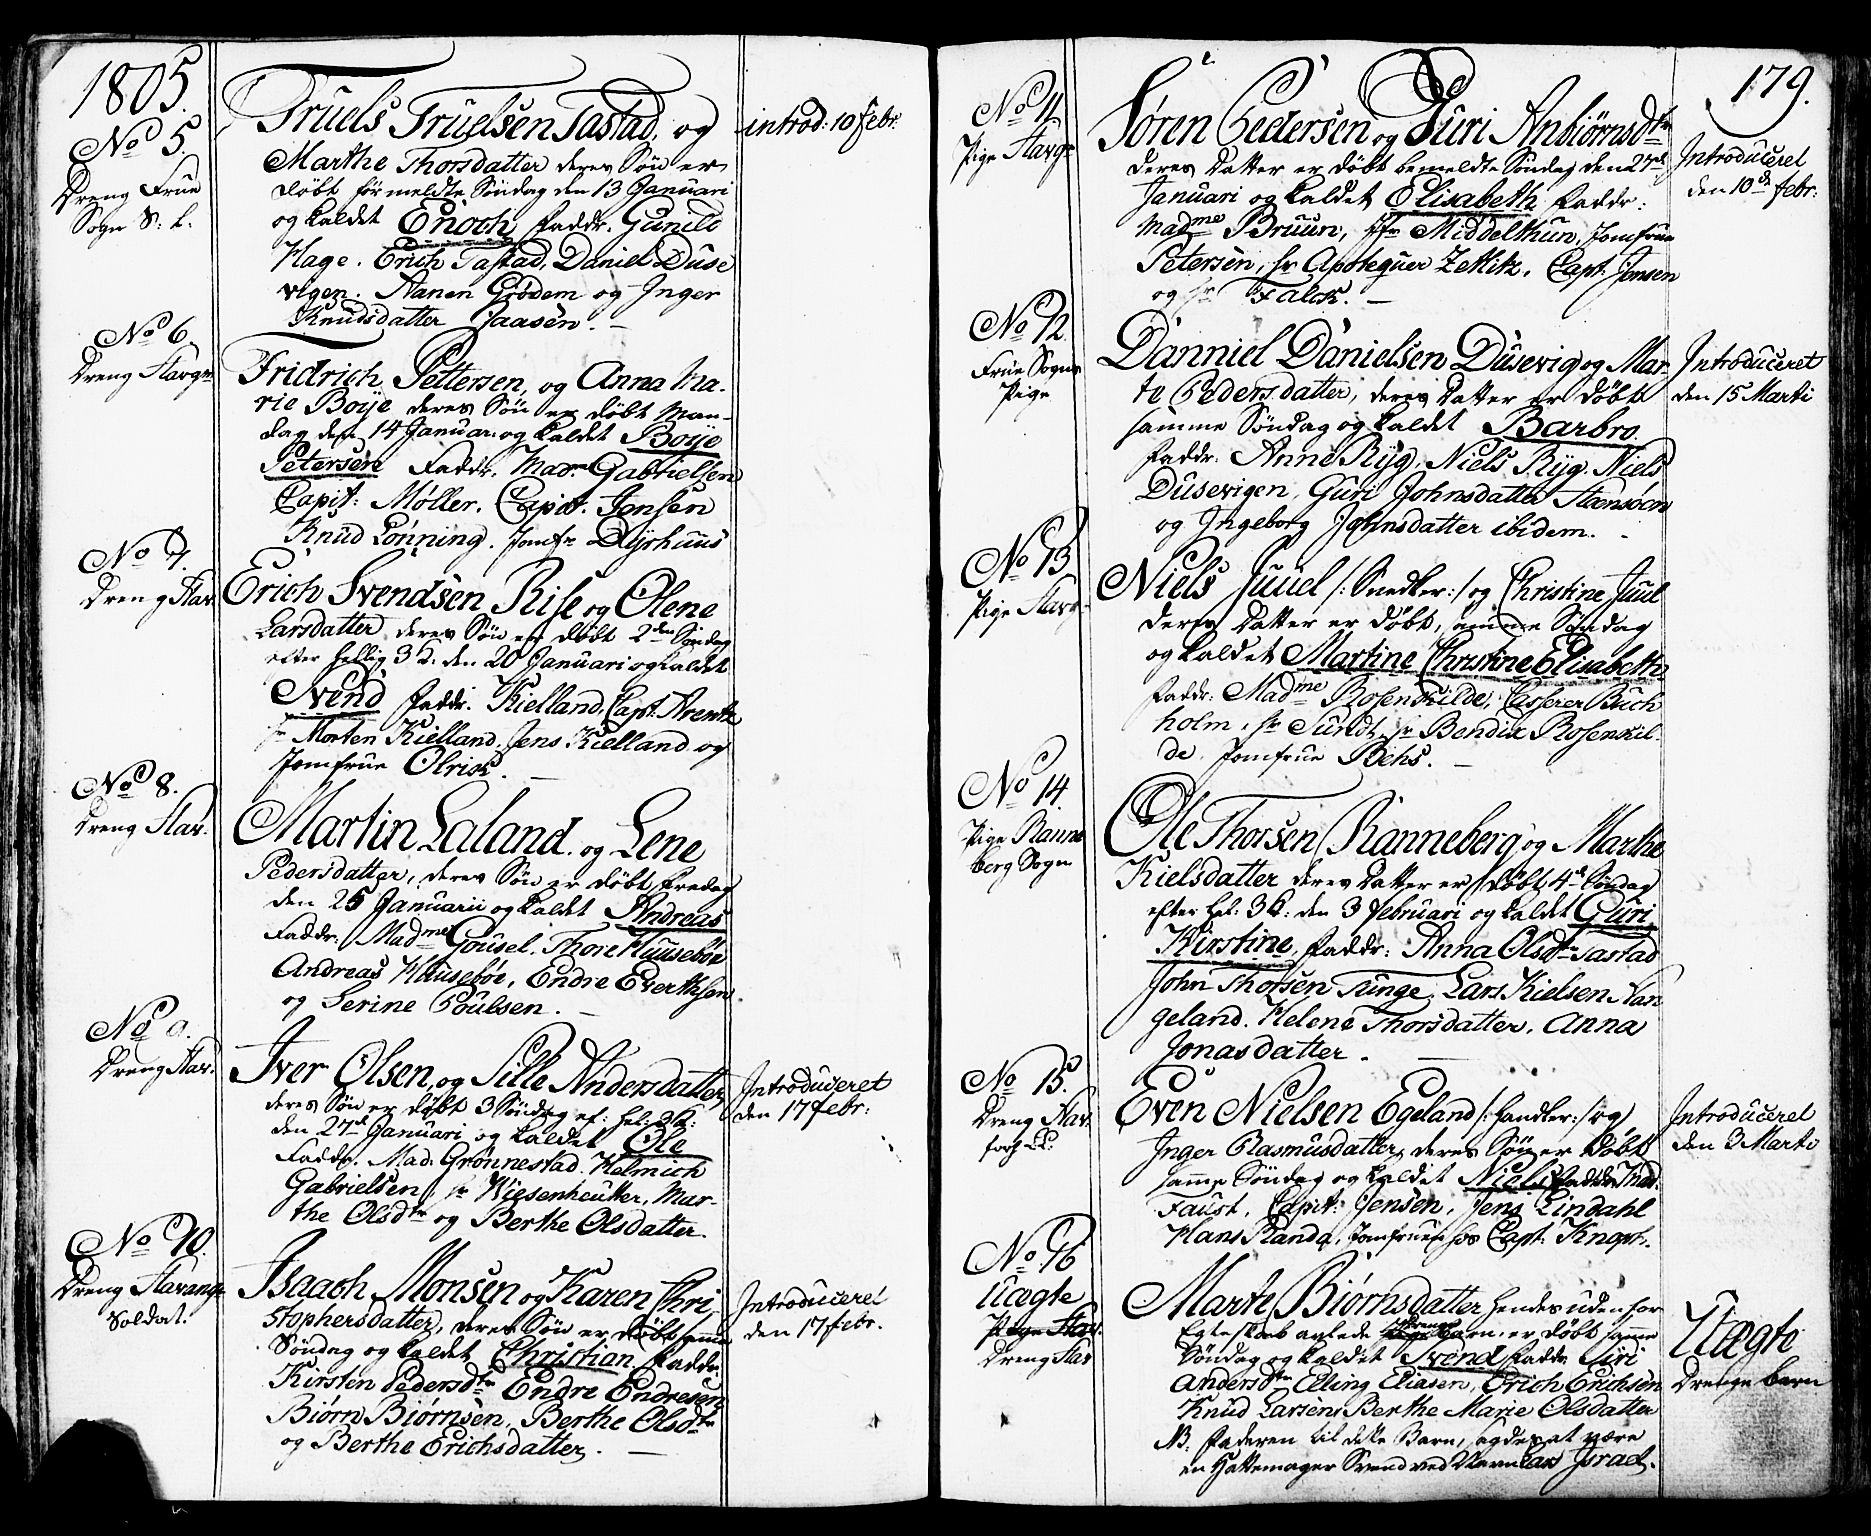 1805.
No 5.
Dreng Frue
Sogn S: L.
Truels Truelsen Tastad, og
Marthe Thorsdatter deres Søn er
døbt formeldte Søndag den 13 Januari
og kaldet Enoch, faddr. Gunild
Hage. Erich Tastad, Daniel Duse
vigen. Nanen Grødem og Inger
Knudsdatter Jaasen.
introd: 10 febr:
No 6.
Dreng Stavgr
Fridrich Pettersen, og Anna Ma-
rie Boije deres Søn er døbt Man-
dag den 14 Januar: og kaldet Boije
Petersen Faddr. Madme Gabrielsen
Capit: Møller. Capit. Jensen
Knud Lønning. Jomfr Dyrhuus
No 7.
Dreng Stav.
Erich Svendsen Rise og Olene
Larsdatter deres Søn er døbt 2den Søndag
efter hellig 3 K: den 20 Januari og kaldet
Svend faddr. Kielland, Capt. Arentz
hr Morten Kielland. Jens Kielland og
Jomfrue Olrick.
No 8.
Dreng Stav.
Martin Laland. og Lene
Pedersdatter, deres Søn er døbt Fredag
den 25 Januarii og kaldet Andreas
Faddr: Madme Gousel. Thore Huusebøe
Andreas Huusebøe, Endre Everthsen
og Serine Poulsen.
No 9.
Dreng Stav.
Iver Olsen, og Sille Andersdatter,
deres Søn er døbt 3 Søndag ef: hel: 3 K:
den 27de Januari og kaldet Ole
Faddr. Mad: Grønnestad. Helmich
Gabrielsen, hr Wiesenheutter, Mar-
the Olsdtr og Berthe Olsdatter.
Introduceret
den 17 febr:
No 10.
Dreng Stavang
Soldat.
Isaach Monsen og Karen Chri
stophersdatter, deres Søn er døbt samme
Søndag og kaldet Christian, faddr:
Kirsten Pedersdtr Endre Endresen,
Biørn Biørnsen, Berthe Olsdtr
og Berthe Erichsdatter.
Introduceret
den 17 febr.
179.
No 11
Pige Stavgr
Søren Pedersen og Guri Anbiørnsdtr
deres Datter er døbt bemeldte Søndag den 27de
Januari og kaldet Elisabeth faddr:
Madme Bruun, Jfr Middelthun, Jomfrue
Petersen, hr Apotequer Zetlitz, Capt: Jensen
og hr Falck.
Introduceret
den 10de febr:
No 12.
Frue Sogns
Pige
Danniel Danielsen Dusevig og Mar
te Pedersdatter, deres Datter er døbt
samme Søndag og kaldet Barbro.
faddr: Anne Ryg, Niels Ryg. Niels
Dusevigen, Guri Johnsdatter
og Ingeborg Johnsdatter ibidem.
Introduceret
den 15 Marti
No 13
Pige Stavgr
Niels Juuel /: Snedker:/ og Christine Juul
deres Datter er døbt, samme Søndag
og kaldet Martine Christine Elisabeth
faddr: Madme Rosenkilde, Casserer Buch
holm, hr Sundt, hr Bendix Rosenkil-
de. Jomfrue Behs.
No 14.
Pige Ranne
berg Sogn
Ole Thorsen Ranneberg og Marthe
Kielsdatter deres Datter er døbt 4de Søndag
efter hel: 3 K: den 3 februari og kaldet Guri
Kirstine, faddr: Anna Olsdtr Tastad
John Thorsen Tunge, Lars Kielsen Har
geland. Helene Thorsdatter. Anna
Jonasdatter.
No 15.
Dreng Stav.
Even Nielsen Egeland /: handler:/ og
Inger Rasmusdatter, deres Søn er døbt
samme Søndag og kaldet Niels faddr: Mad:
Faust, Capit: Jensen, Jens Lindahl
Hans Randa, Jomfruen hos Capt: Knoph.
Introduceret
den 3 Marti
No 16
Uægte
Pige Stav:
Dreng Stav
Marte Biørnsdatter hendes uden for
Egteskab avlede Drenge Barn, er døbt samme
Søndag og kaldet Svend faddr: Siri
Andersdtr Elling Eliasen, Erich Erichsen
Knud Larsen, Berthe Marie Olsdatter
NB: Faderen til dette Barn, sagdes at være
en Hattemager Svend ved Navn Lars Israel.
Uægte
Drenge barn